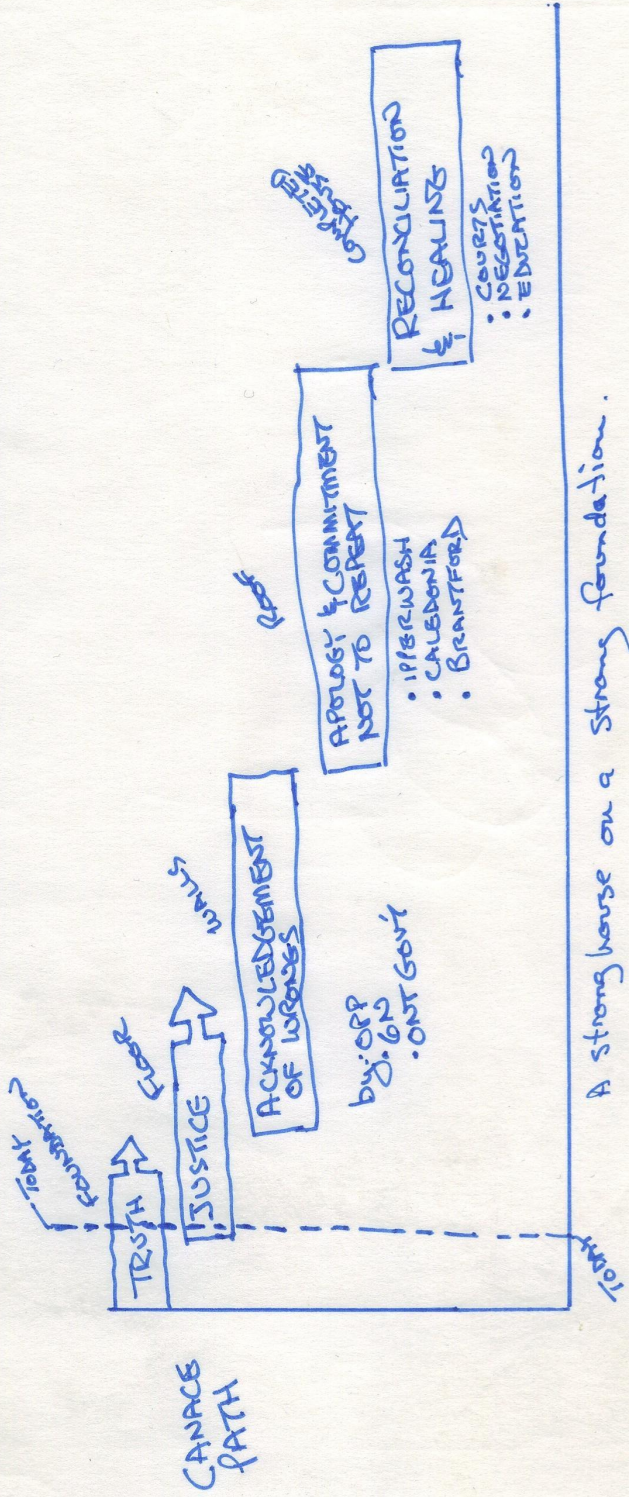 CANACE
PATH
TODAY
FOUNDATION
TRUTH
FLOOR
JUSTICE
WALLS
ACKNOWLEDGEMENT
OF WRONGS
by: OPP
• 6N
• ONT GOV'T
ROOF
APOLOGY & COMMITMENT
NOT TO REPEAT
• IPPERWASH
• CALEDONIA
• BRANTFORD
COMPLETED
HOUSE
RECONCILIATION
& HEALING
• COURTS
• NEGOTIATION
• EDUCATION
TODAY
A strong house on a strong foundation.